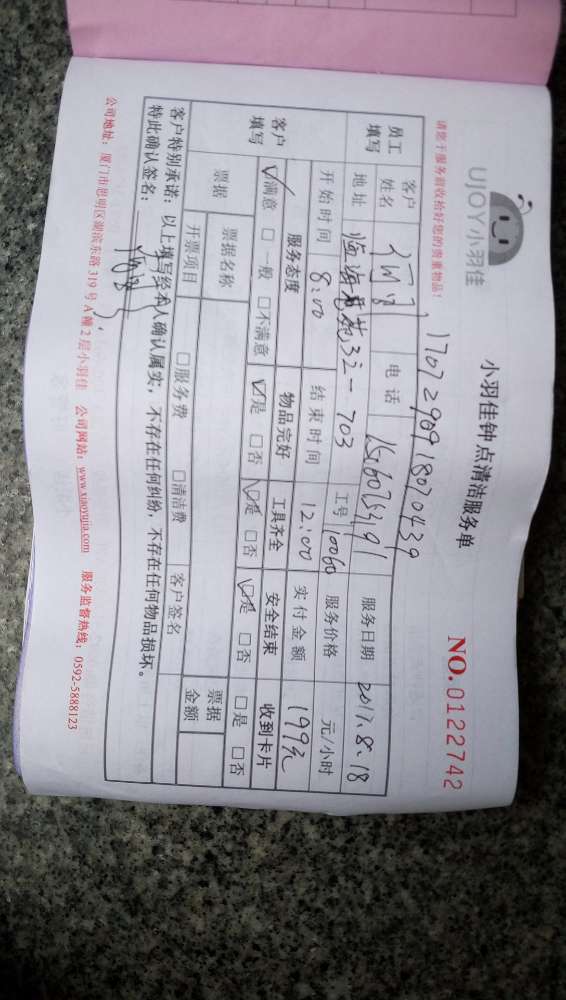 UJOY小羽佳
小羽佳钟点清洁服务单
NO.0122742
请您于服务前收给好您的贵重物品！
1707290918070439
员工填写 客户姓名 电话 服务日期 2017.8.18
地址 32-703 工号 10060 服务价格 元/小时
开始时间 8:00 结束时间 12:00 实付金额 199元
客户填写 服务态度 物品完好 工具齐全 安全结束 收到卡片
☑满意 □一般 □不满意 ☑是 □否 ☑是 □否 ☑是 □否 □是 □否
票据 票据名称 票据金额
开票项目 □服务费 □清洁费 客户签名
客户特别承诺：以上填写经本人确认属实，不存在任何纠纷，不存在任何物品损坏。
特此确认签名：
公司地址：厦门市思明区湖滨东路319号A幢2层小羽佳 公司网站：www.xiaoyujia.com 服务监督热线：0592-5888123